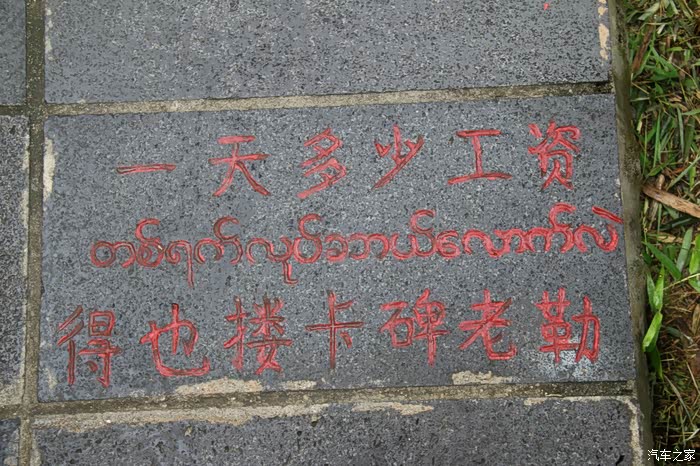 一天多少工资
တစ်ရက်လုပ်ခဘယ်လောက်လဲ
得也搂卡碑老勒
汽车之家